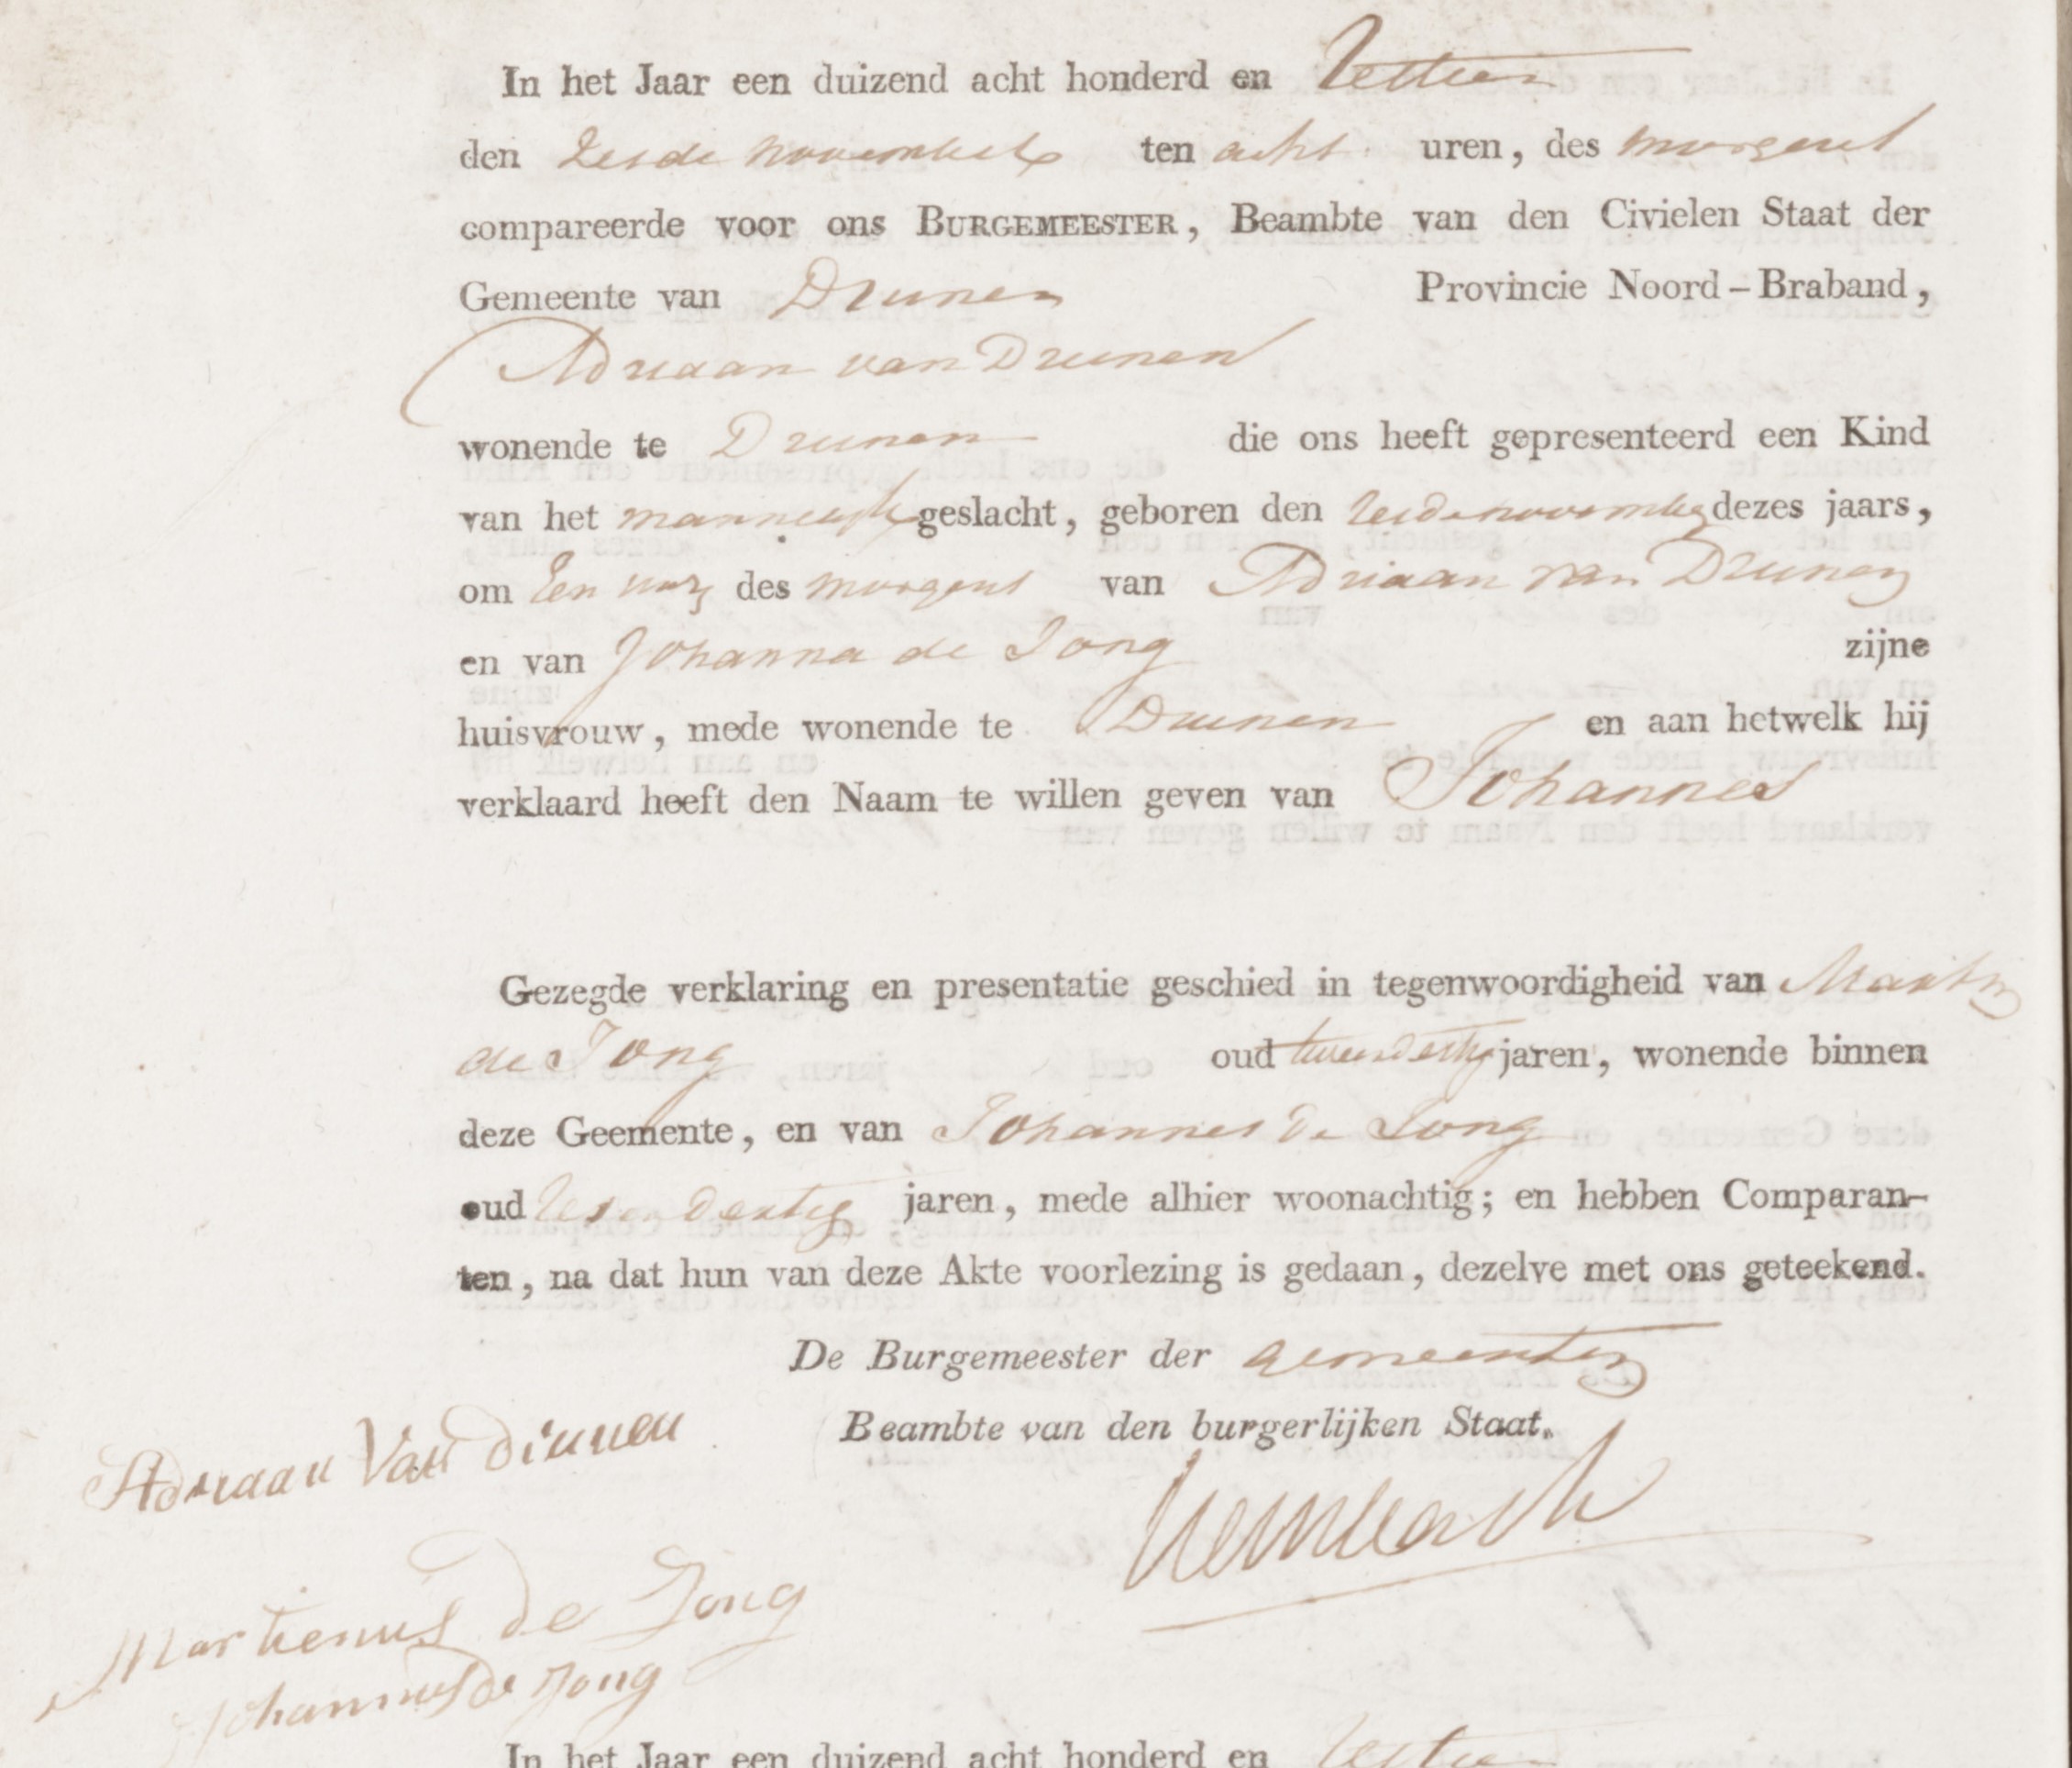 In het Jaar een duizend acht honderd en Zestien
den Zesde november ten acht uren, des morgens
compareerde voor ons BURGEMEESTER, Beambte van den Civielen Staat der
Gemeente van Drunen Provincie Noord-Braband,
Adriaan van Drunen
wonende te Drunen die ons heeft gepresenteerd een Kind
van het mannelijk geslacht, geboren den Zesde november dezes jaars,
om Een uur des morgens van Adriaan van Drunen
en van Johanna de Jong zijne
huisvrouw, mede wonende te Drunen en aan hetwelk hij
verklaard heeft den Naam te willen geven van Johannes
Gezegde verklaring en presentatie geschied in tegenwoordigheid van Martin
de Jong oud jaren, wonende binnen
deze Geemente, en van Johannes de Jong
oud Zesendertig jaren, mede alhier woonachtig; en hebben Comparan-
ten, na dat hun van deze Akte voorlezing is gedaan, dezelve met ons geteekend.
De Burgemeester der gemeente
Beambte van den burgerlijken Staat.
Adriaan Van Drunen
Martienus de Jong
Johannes de Jong
In het Jaar een duizend acht honderd en Zestien